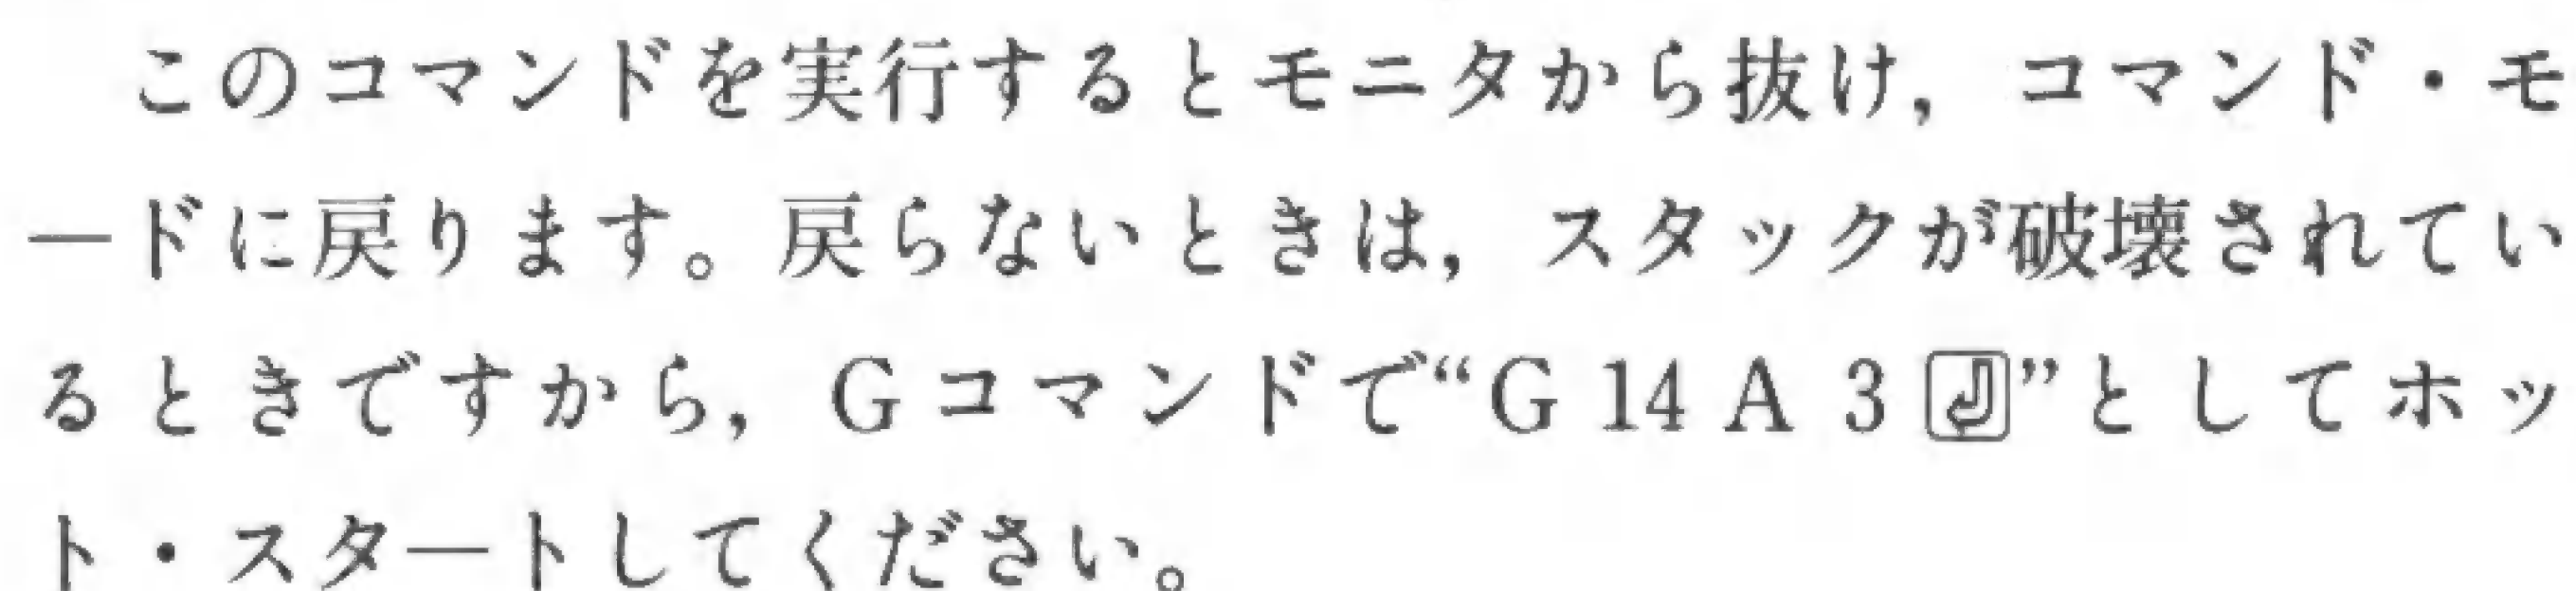 このコマンドを実行するとモニタから抜け，コマンド・モ
ードに戻ります。戻らないときは，スタックが破壊されてい
るときですから，Gコマンドで“G 14 A 3 ⏎”としてホッ
ト・スタートしてください。